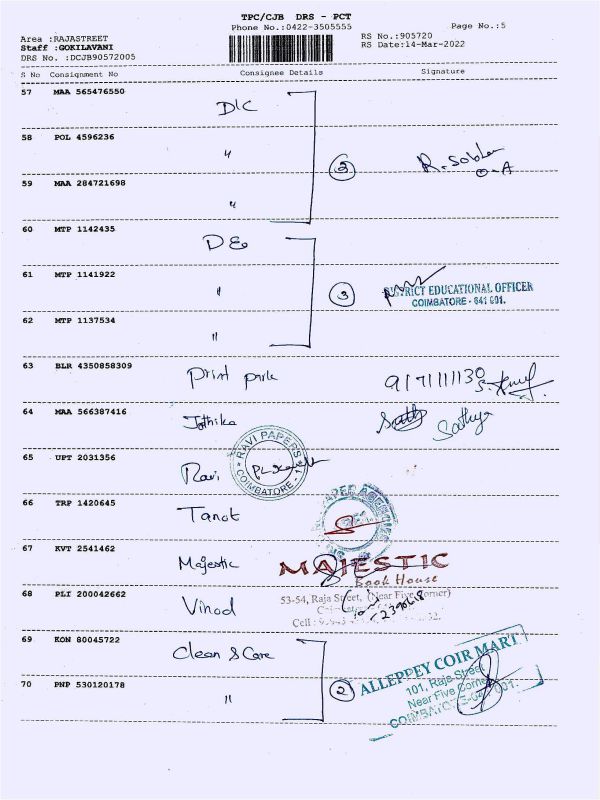 TPC/CJB DRS - PCT
Phone No.:0422-3505555
Page No.:5
Area :RAJASTREET
Staff :GOKILAVANI
DRS No. :DCJB90572005
RS No.:905720
RS Date:14-Mar-2022
S No Consignment No Consignee Details Signature
57 MAA 565476550 DIC
58 POL 4596236 "
3 R. Sobha
O-A
59 MAA 284721698 "
60 MTP 1142435 DEo
61 MTP 1141922 "
3 DISTRICT EDUCATIONAL OFFICER
COIMBATORE - 641 001.
62 MTP 1137534 "
63 BLR 4350858309 Print park
64 MAA 566387416 Jothika Sathya
65 UPT 2031356 Ravi
RAVI PAPERS
COIMBATORE - 1
66 TRP 1420645 Tanot
67 KVT 2541462 Majestic
MAJESTIC
Book House
53-54, Raja Street, (Near Five Corner)
68 PLI 200042662 Vinod
Cell :
69 KON 80045722 Clean & Care
70 PNP 530120178 "
2 ALLEPPEY COIR MART
101, Raja Street
Near Five Corner